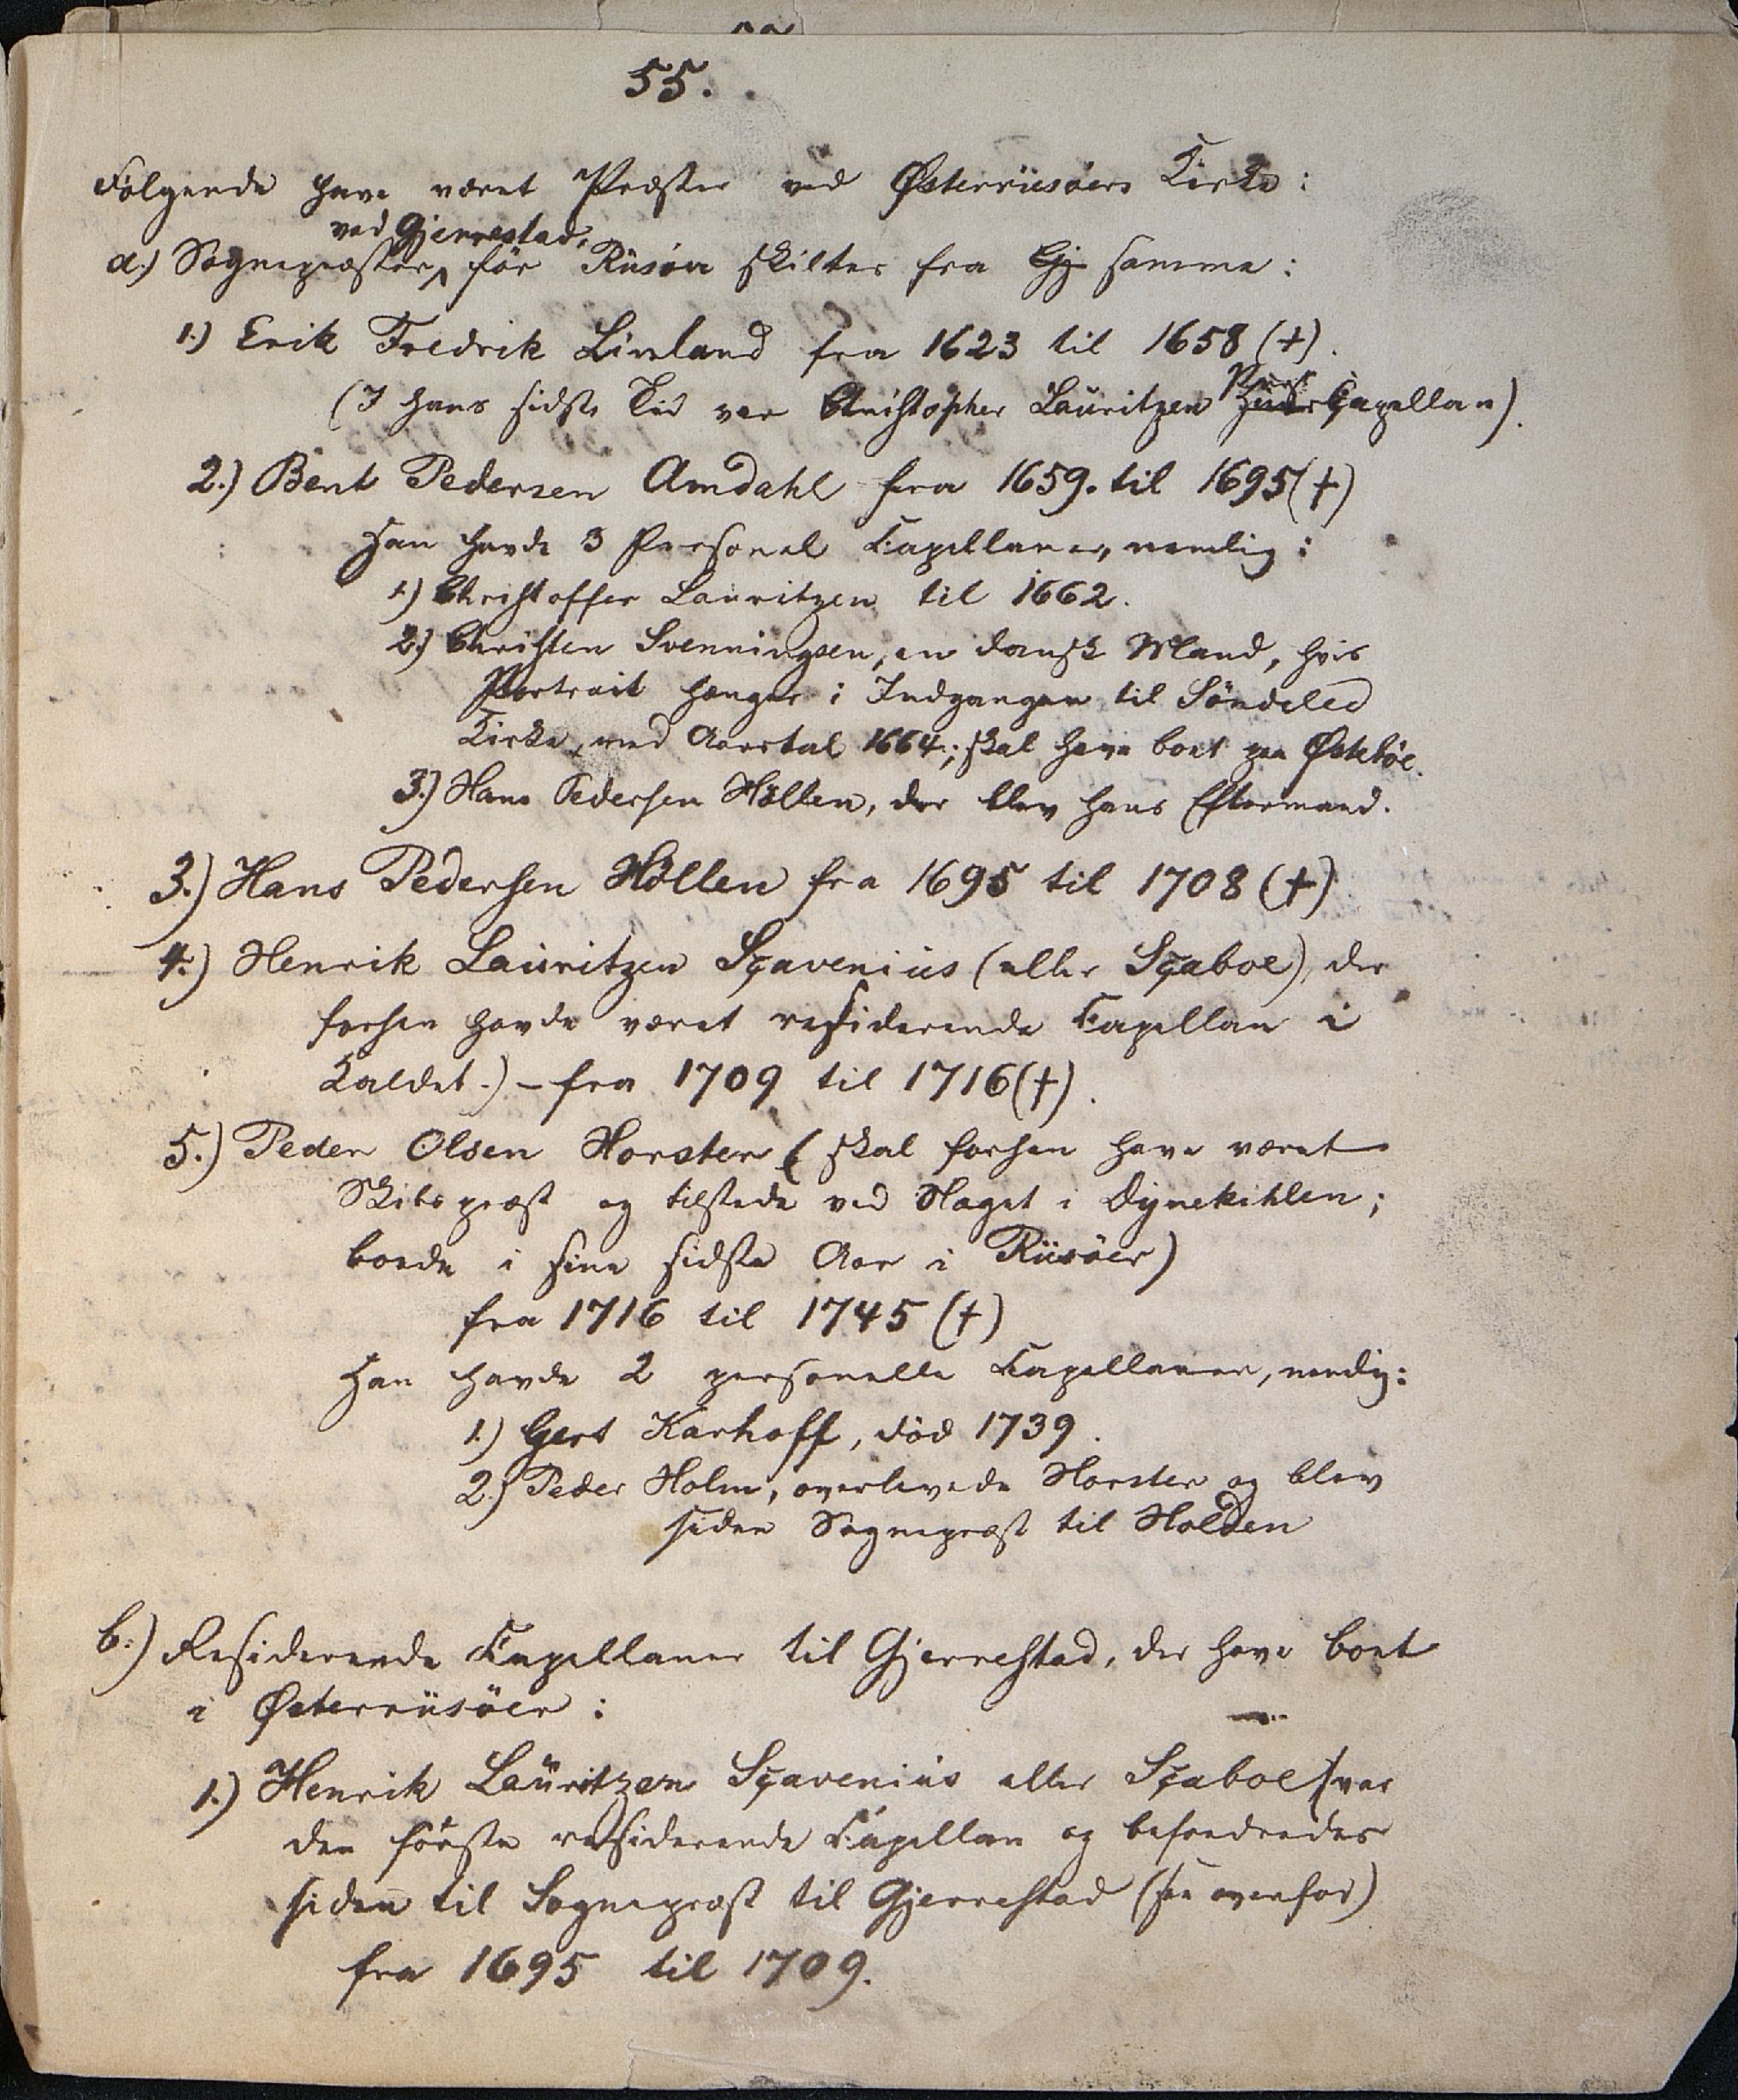 55.
Følgende have været Præster ved Østerriisøers Kirke:
ved Gjerrestad,
a.) Sognepræster, før Riisøer skiltes fra Gj samme:
1.) Erik Fredrik Linland fra 1623 til 1658 (†).
Pers.
(I hans sidste Tid var Christopher Lauritzen Capellan).
2.) Bent Pedersen Amdahl fra 1659. til 1695 (†)
Han havde 3 Personel Kapellaner, nemlig:
1.) Christoffer Lauritzen til 1662.
2.) Christen Svenningsen, en dansk Mand, hvis
Portrait hænger i Indgangen til Søndeled
Kirke, med Aarstal 1664; skal have boet paa Østebøe.
3.) Hans Pedersen Höllen, der blev hans Eftermand.
3.) Hans Pedersen Höllen fra 1695 til 1708 (†)
4.) Henrik Lauritzen Scavenius (eller Scaboe), der
forhen havde været residerende Kapellan i
Kaldet.) – fra 1709 til 1716 (†).
5.) Peder Olsen Horster ( skal forhen have været
Skibspræst og tilstede ved Slaget i Dynekihlen;
boede i sine sidste Aar i Riisöer)
fra 1716 til 1745 (†)
Han havde 2 personelle Kapellaner, nemlig:
1.) Gert Karhoff, död 1739.
2.) Peder Holm, overlevede Horster og blev
siden Sognepræst til Holden
b.) Residerende Kapellaner til Gjerrestad, der have boet
i Østerriisöer:
1.) Henrik Lauritzen Scavenius eller Scaboe (var
den förste residerende Kapellan og befordredes
siden til Sognepræst til Gjerrestad (see ovenfor)
fra 1695 til 1709.